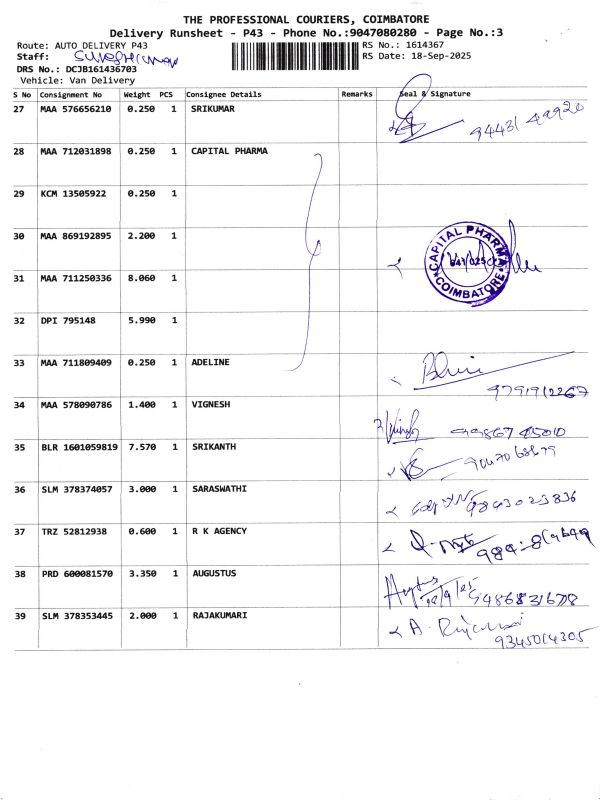 THE PROFESSIONAL COURIERS, COIMBATORE
Delivery Runsheet - P43 - Phone No.:9047080280 - Page No.:3
Route: AUTO DELIVERY P43 RS No.: 1614367
Staff: RS Date: 18-Sep-2025
DRS No.: DCJB161436703
Vehicle: Van Delivery
S No Consignment No Weight PCS Consignee Details Remarks Seal & Signature
27 MAA 576656210 0.250 1 SRIKUMAR
94431 49920
28 MAA 712031898 0.250 1 CAPITAL PHARMA
29 KCM 13505922 0.250 1
30 MAA 869192895 2.200 1 CAPITAL PHARMA
COIMBATORE
31 MAA 711250336 8.060 1
32 DPI 795148 5.990 1
33 MAA 711809409 0.250 1 ADELINE
9791912267
34 MAA 578090786 1.400 1 VIGNESH
99867 45010
35 BLR 1601059819 7.570 1 SRIKANTH
36 SLM 378374057 3.000 1 SARASWATHI 9843023836
37 TRZ 52812938 0.600 1 R K AGENCY
38 PRD 600081570 3.350 1 AUGUSTUS
9486831678
39 SLM 378353445 2.000 1 RAJAKUMARI
9345014305